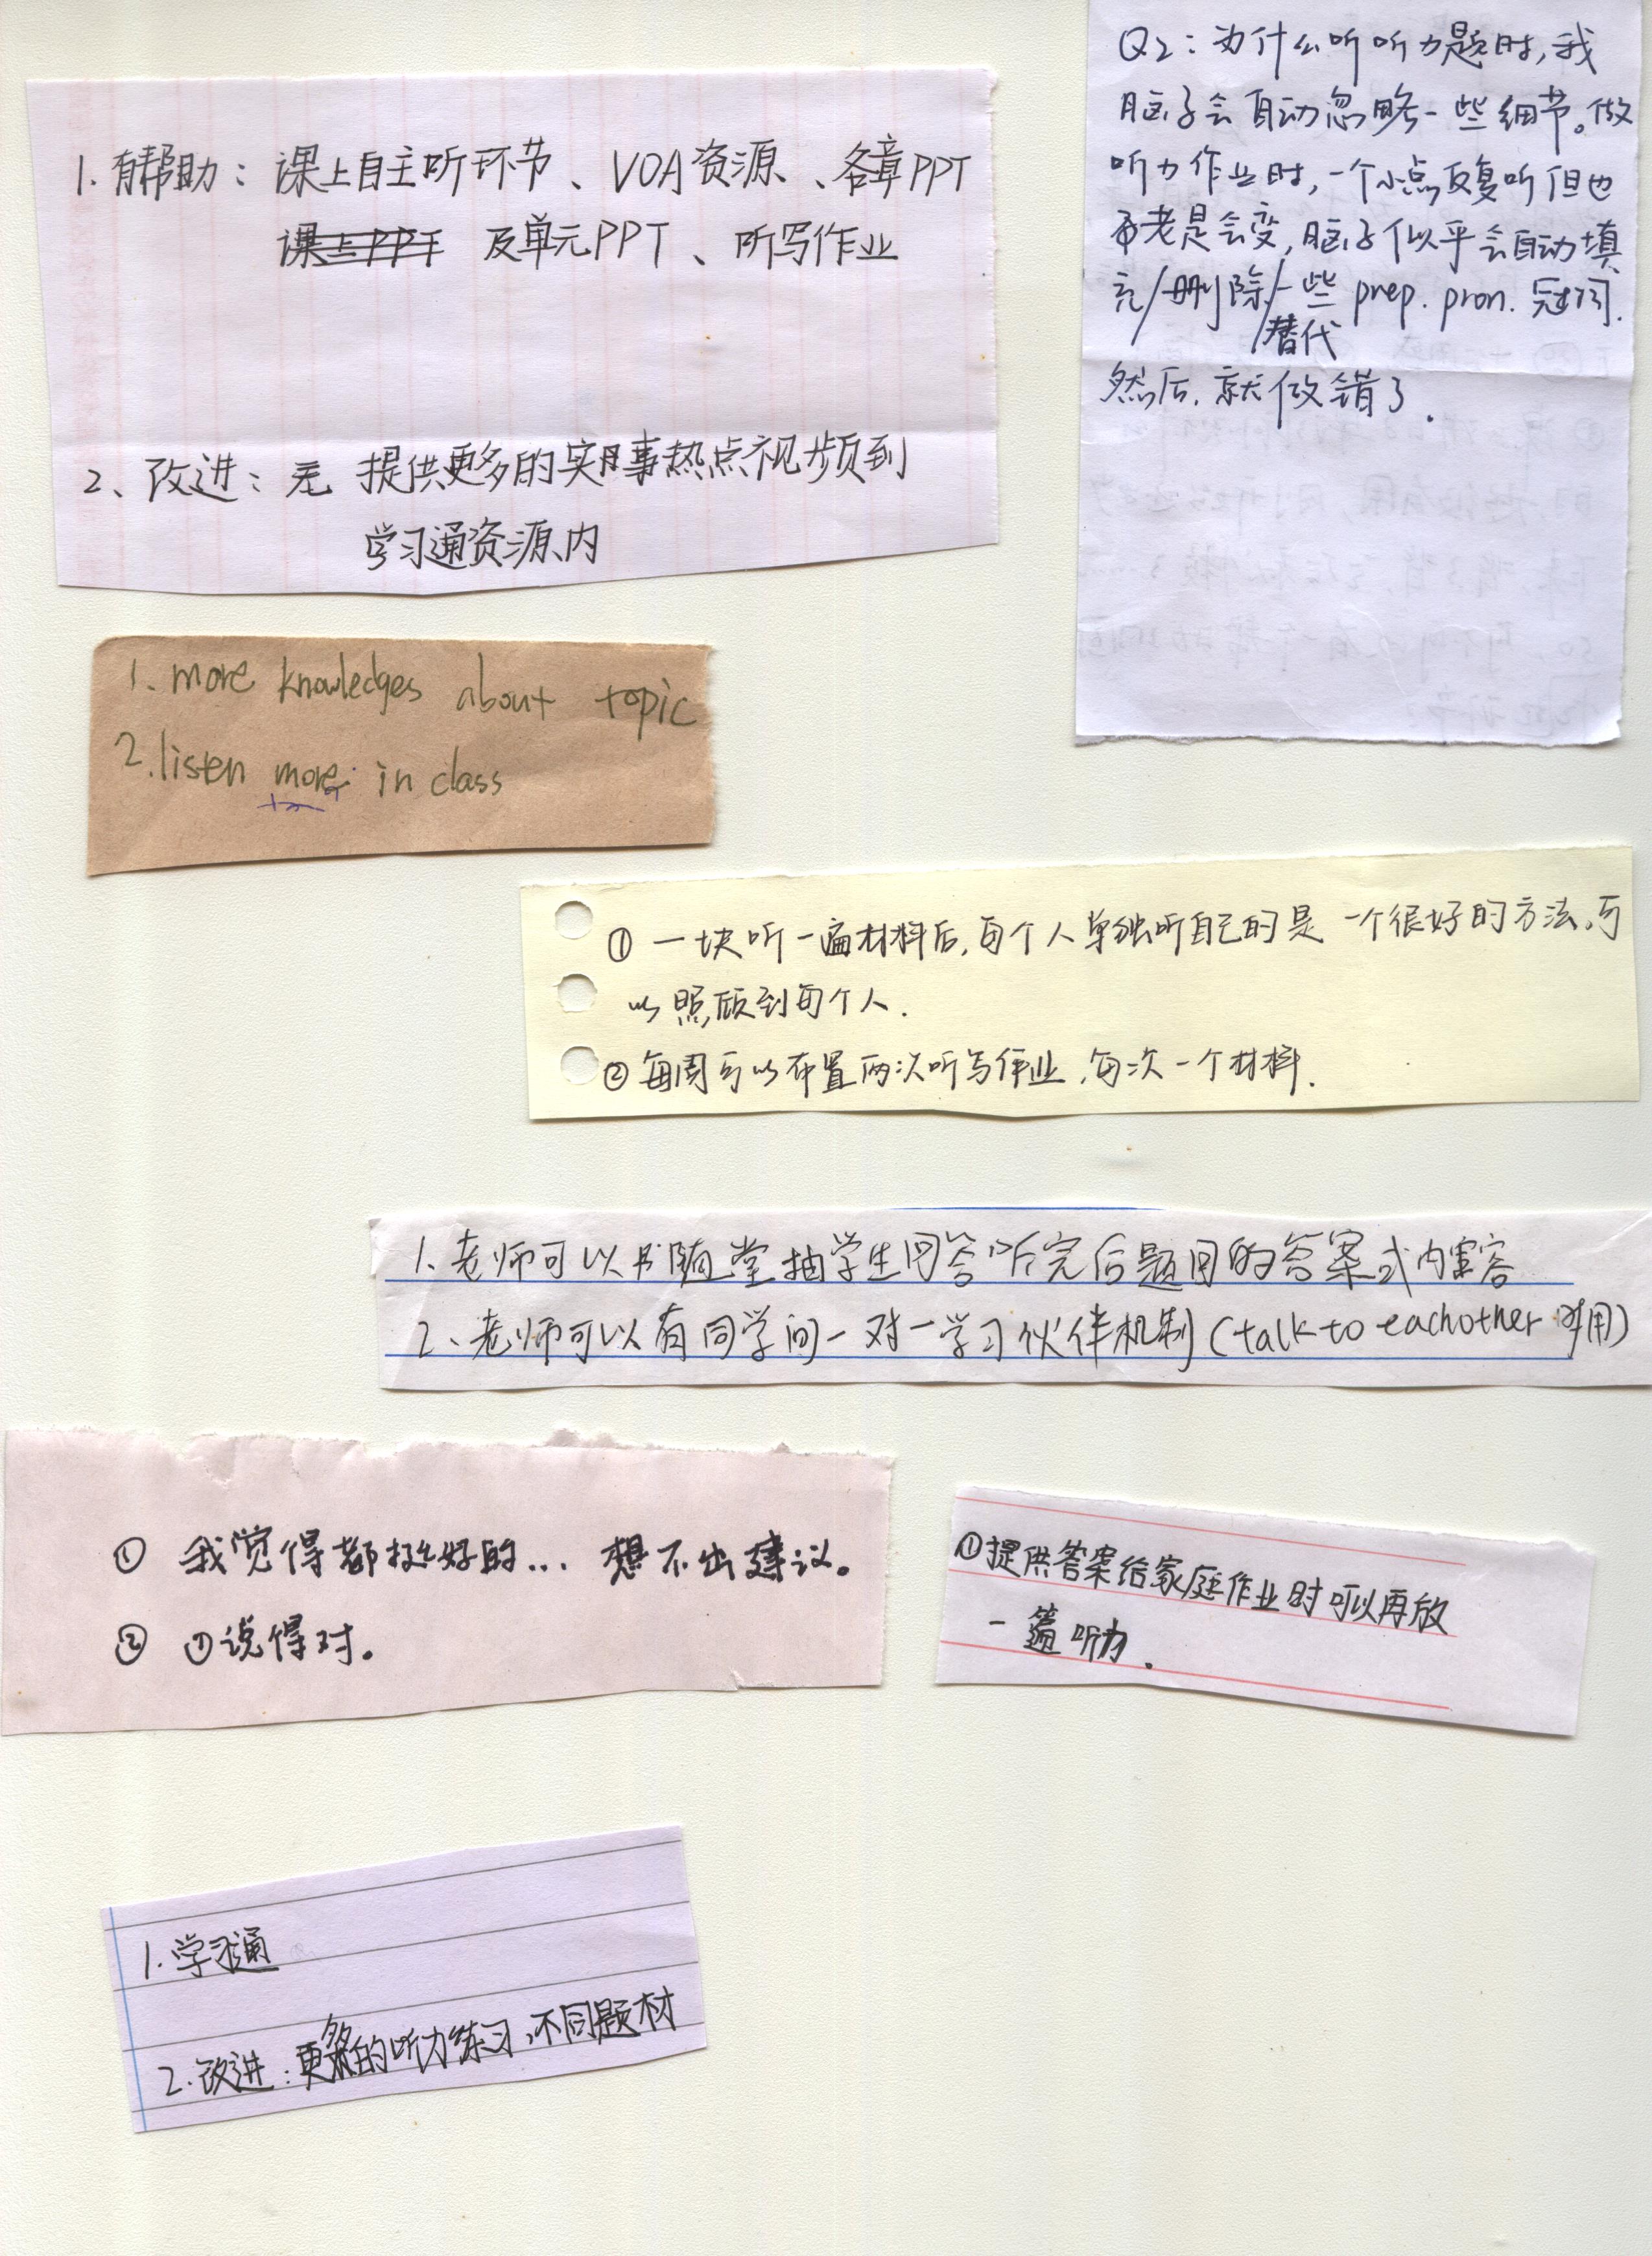 1. 有帮助：课上自主听环节、VOA资源、各章PPT
课上PPT 及单元PPT、听写作业
2、改进：无 提供更多的实时事热点视频到
学习通资源内
Q2：为什么听听力题时,我
脑子会自动忽略一些细节。做
听力作业时,一个小点反复听但也
老是会变,脑子似乎会自动填
充/删除/一些 prep. pron. 冠词.
/替代
然后,就做错了.
1. more knowledges about topic
2. listen more in class
① 一块听一遍材料后,每个人单独听自己的是一个很好的方法,可
以照顾到每个人.
② 每周可以布置两次听写作业,每次一个材料.
1. 老师可以随堂抽学生回答听完后题目的答案或内容
2、老师可以有同学间一对一学习伙伴机制(talk to eachother 时用)
① 我觉得都挺好的... 想不出建议。
② ①说得对。
①提供答案给家庭作业时可以再放
一篇听力.
1. 学习通
2. 改进：更多的听力练习,不同题材